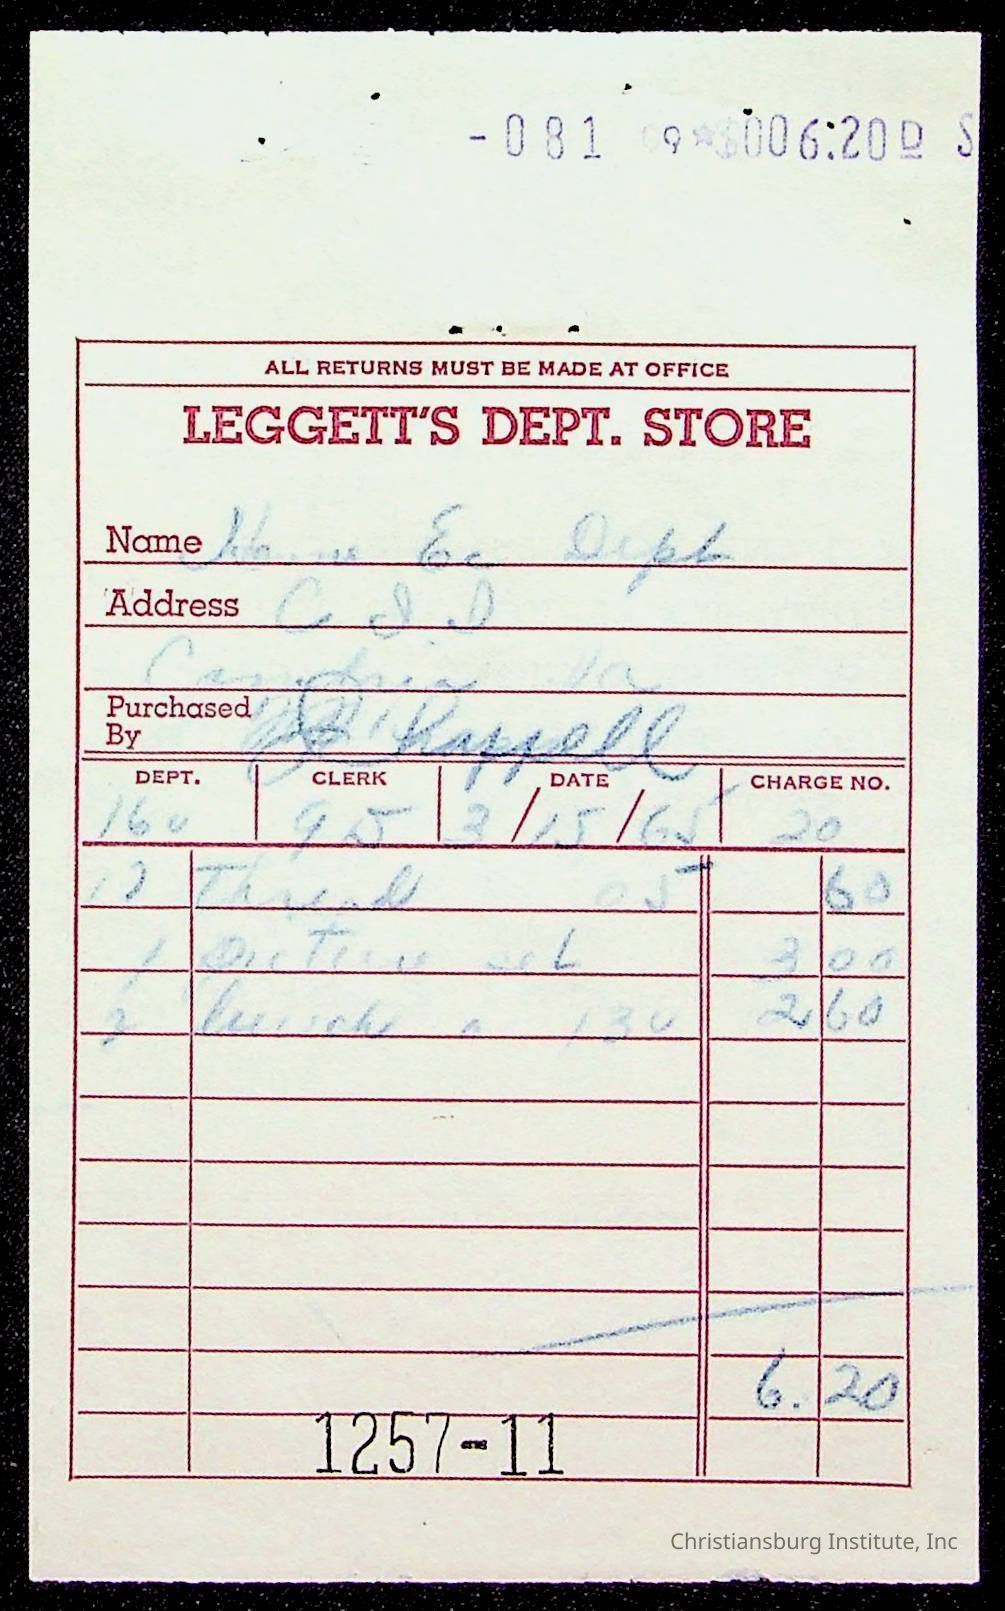 -081 09*$006.20D S
ALL RETURNS MUST BE MADE AT OFFICE
LEGGETT'S DEPT. STORE
Name Home Ec Dept
Address C I I
Cambria Va
Purchased
By Chappell
DEPT. CLERK DATE CHARGE NO.
160 95 3/15/65 20
12 Thread 05 60
1 Picture set 3 00
2 130 2 60
6.20
1257-11
Christiansburg Institute, Inc